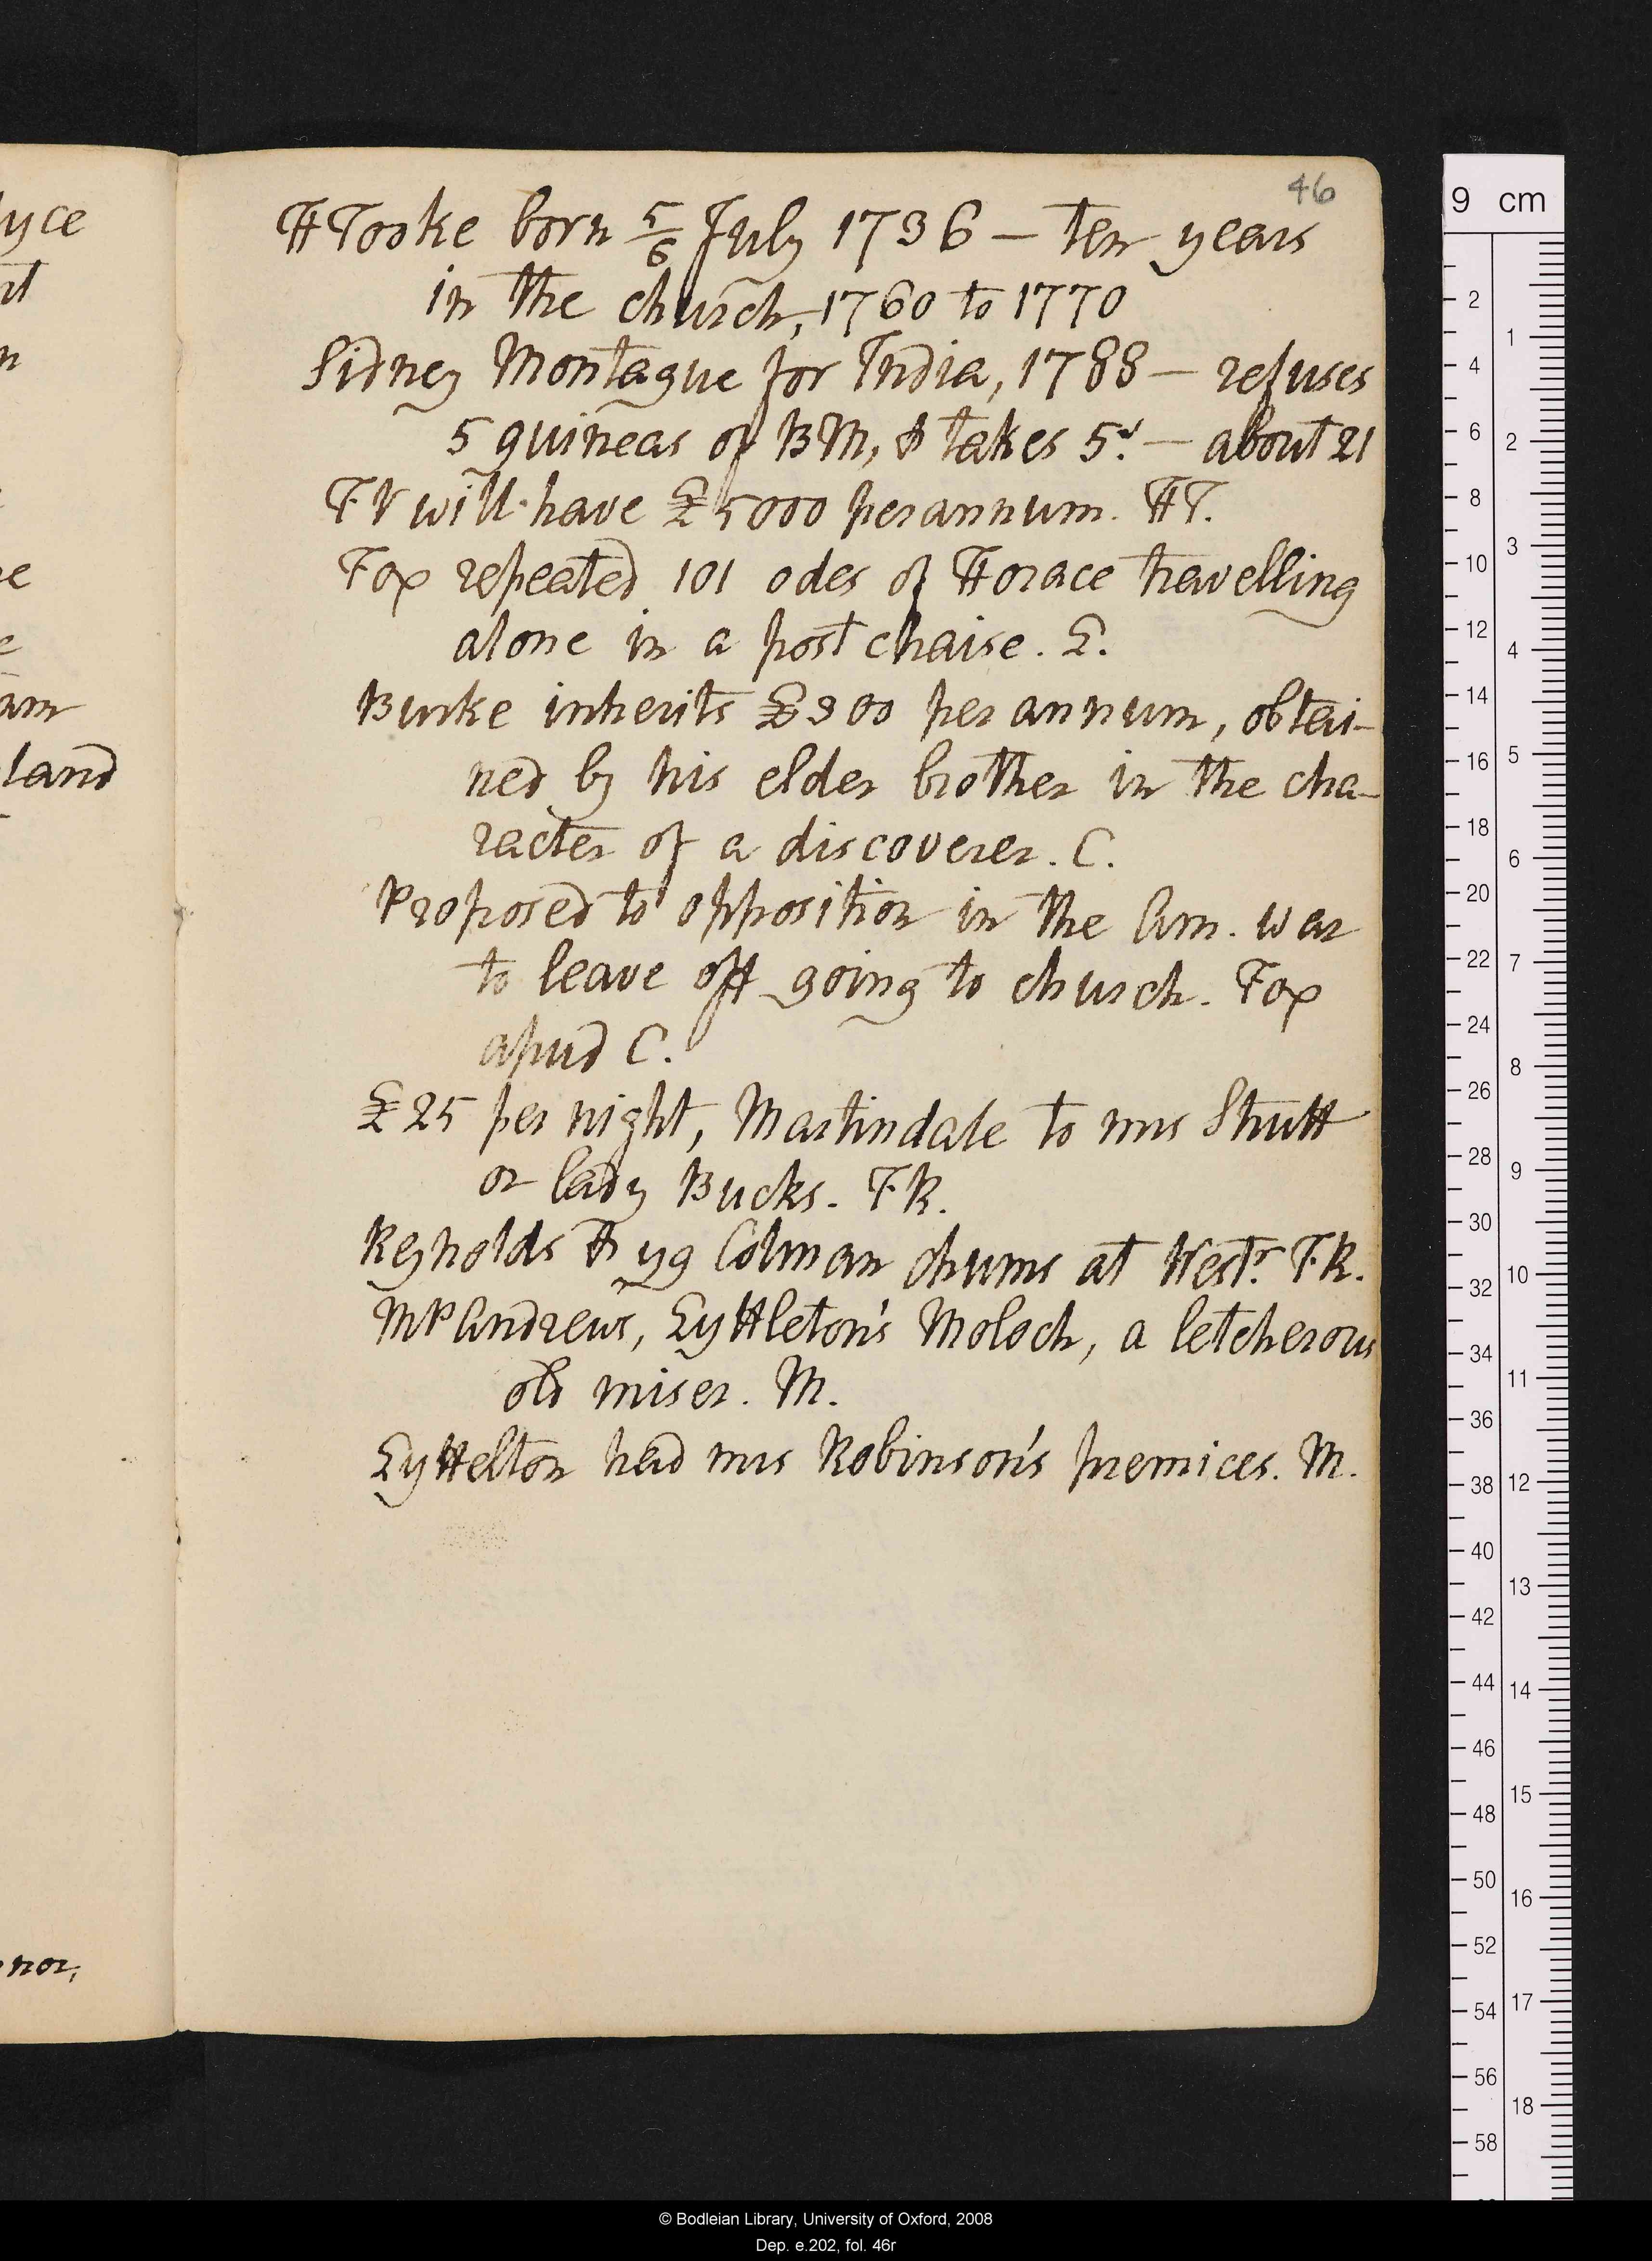 46
HTooke born 5/6 July 1736 — ten years
in the church, 1760 to 1770
Sidney Montague for India, 1788 — refuses
5 guineas of BM, & takes 5.s — about 21
FV will have £5000 per annum. HT.
Fox repeated 101 odes of Horace travelling
alone in a post chaise. L.
Burke inherits £300 per annum, obtai-
ned by his elder brother in the cha-
racter of a discoverer. C.
Proposed to opposition in the Am. war
to leave off going to church. Fox
apud C.
£25 per night, Martindale to mrs Strutt
or lady Bucks. FR.
Reynolds & yg Colman chums at Westr. FR.
MP Andrews, Lyttleton's Moloch, a letcherous
old miser. M.
Lyttelton had mrs Robinson's premices. M.
yce
n
re
e
am
land
nor,
9 cm
2
4
6
8
10
12
14
16
18
20
22
24
26
28
30
32
34
36
38
40
42
44
46
48
50
52
54
56
58
1
2
3
4
5
6
7
8
9
10
11
12
13
14
15
16
17
18
© Bodleian Library, University of Oxford, 2008
Dep. e.202, fol. 46r